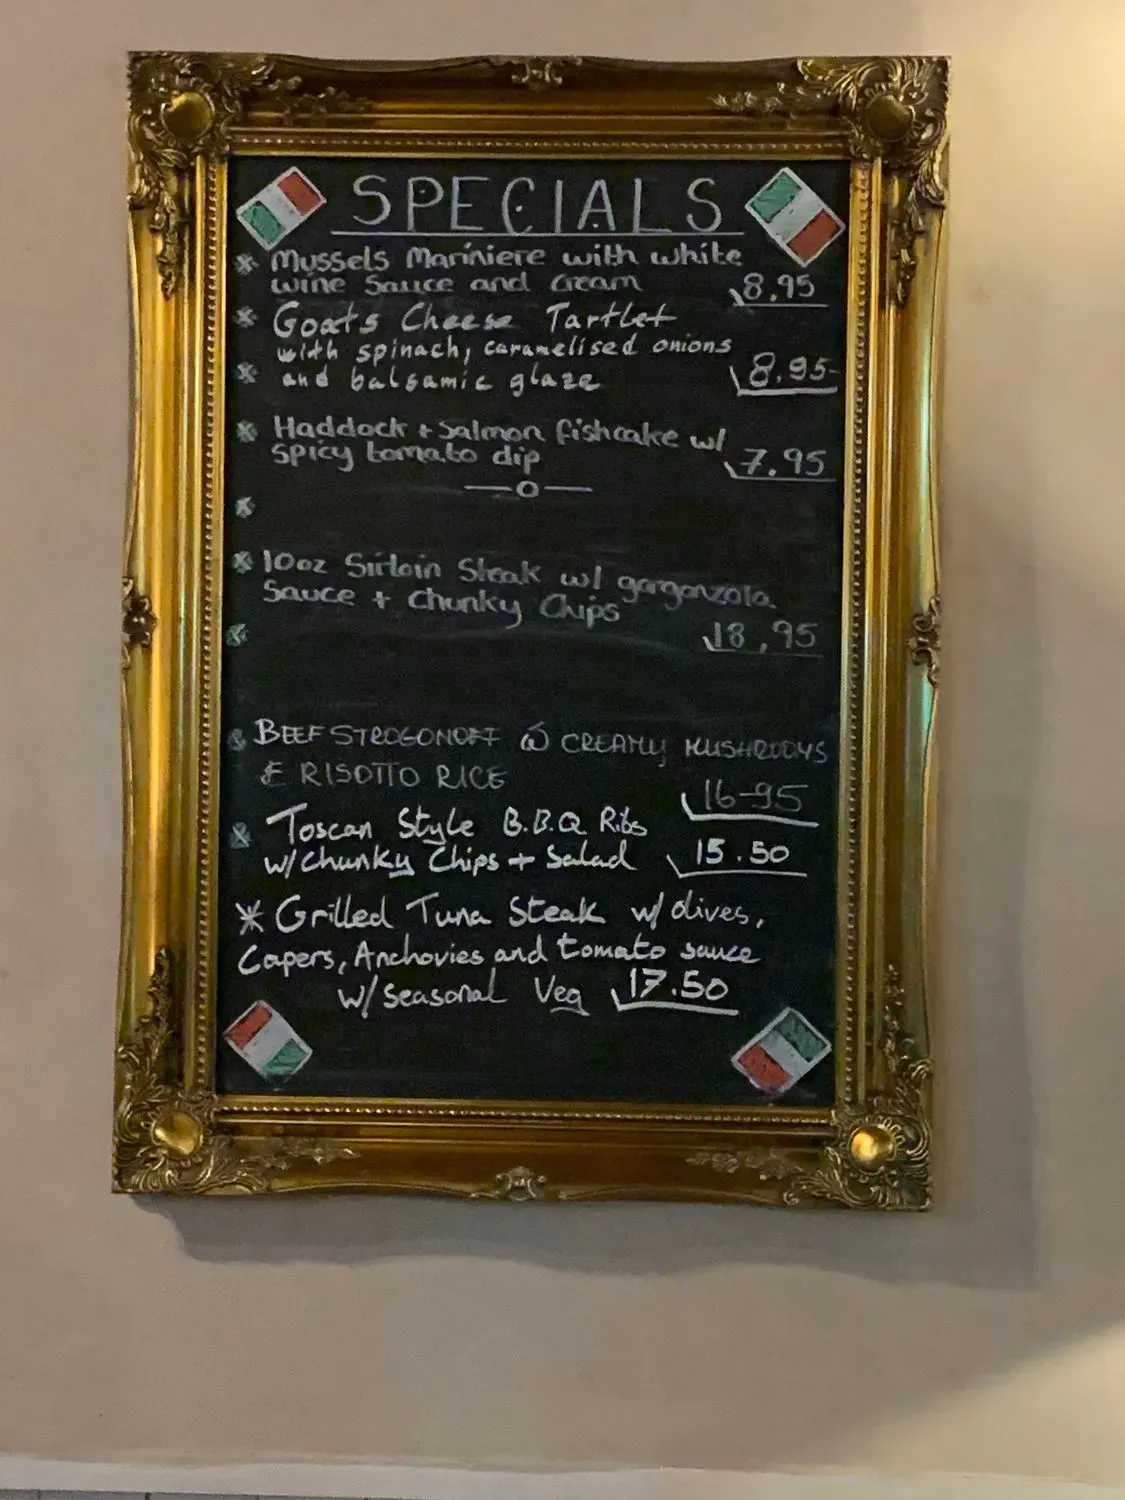 SPECIALS
* Mussels Mariniere with white
wine Sauce and cream 8.95
* Goats Cheese Tartlet
with spinach, caramelised onions
* and balsamic glaze 8.95
* Haddock + Salmon fishcake w/
spicy tomato dip 7.95
—o—
*
* 10oz Sirloin Steak w/ gorgonzola
Sauce + Chunky Chips
18,95
*
* BEEF STROGONOFF W CREAMY MUSHROOMS
& RISOTTO RICE 16-95
* Toscan Style B.B.Q Ribs
w/chunky Chips + Salad 15.50
* Grilled Tuna Steak w/ olives,
Capers, Anchovies and tomato sauce
w/ seasonal Veg 17.50